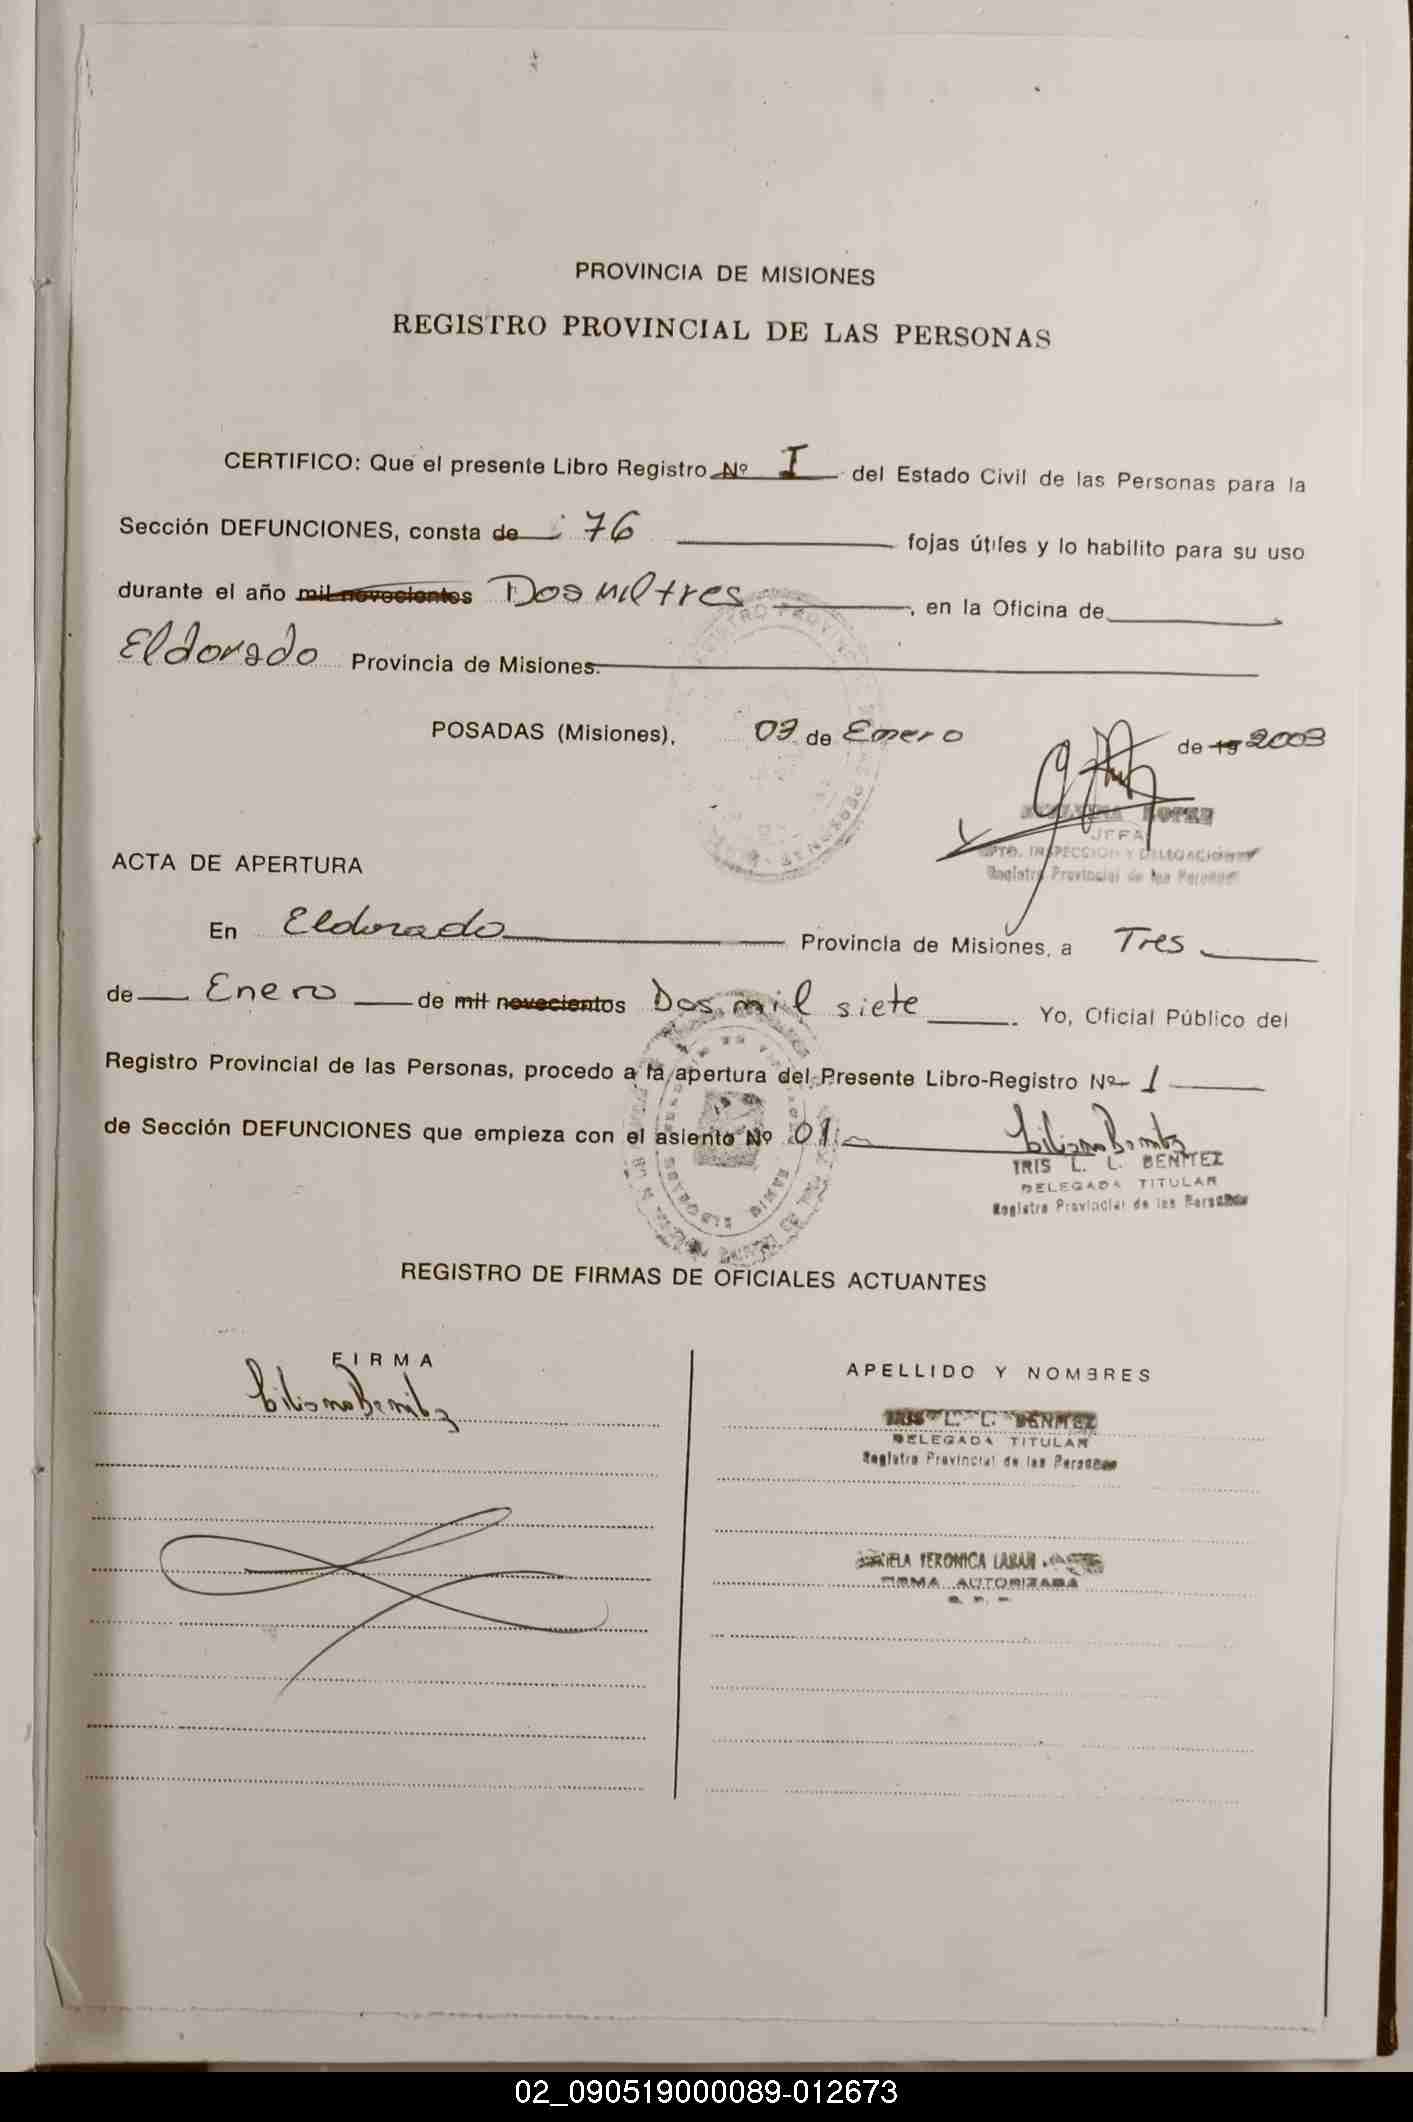 PROVINCIA DE MISIONES
REGISTRO PROVINCIAL DE LAS PERSONAS
CERTIFICO: Que el presente Libro Registro Nº I del Estado Civil de las Personas para la
Sección DEFUNCIONES, consta de 76 fojas útiles y lo habilito para su uso
durante el año mil novecientos Dos mil tres, en la Oficina de
Eldorado Provincia de Misiones.
POSADAS (Misiones), 03 de Enero de 19 2003
LOPEZ
JEFA
DPTO. INSPECCION Y DELEGACIONES
Registro Provincial de las Personas
ACTA DE APERTURA
En Eldorado Provincia de Misiones, a Tres
de Enero de mil novecientos Dos mil siete. Yo, Oficial Público del
Registro Provincial de las Personas, procedo a la apertura del Presente Libro-Registro Nº 1
de Sección DEFUNCIONES que empieza con el asiento Nº 01
IRIS L. L. BENITEZ
DELEGADA TITULAR
Registro Provincial de las Personas
REGISTRO DE FIRMAS DE OFICIALES ACTUANTES
FIRMA
APELLIDO Y NOMBRES
IRIS L. L. BENITEZ
DELEGADA TITULAR
Registro Provincial de las Personas
VERONICA
FIRMA AUTORIZADA
02_090519000089-012673